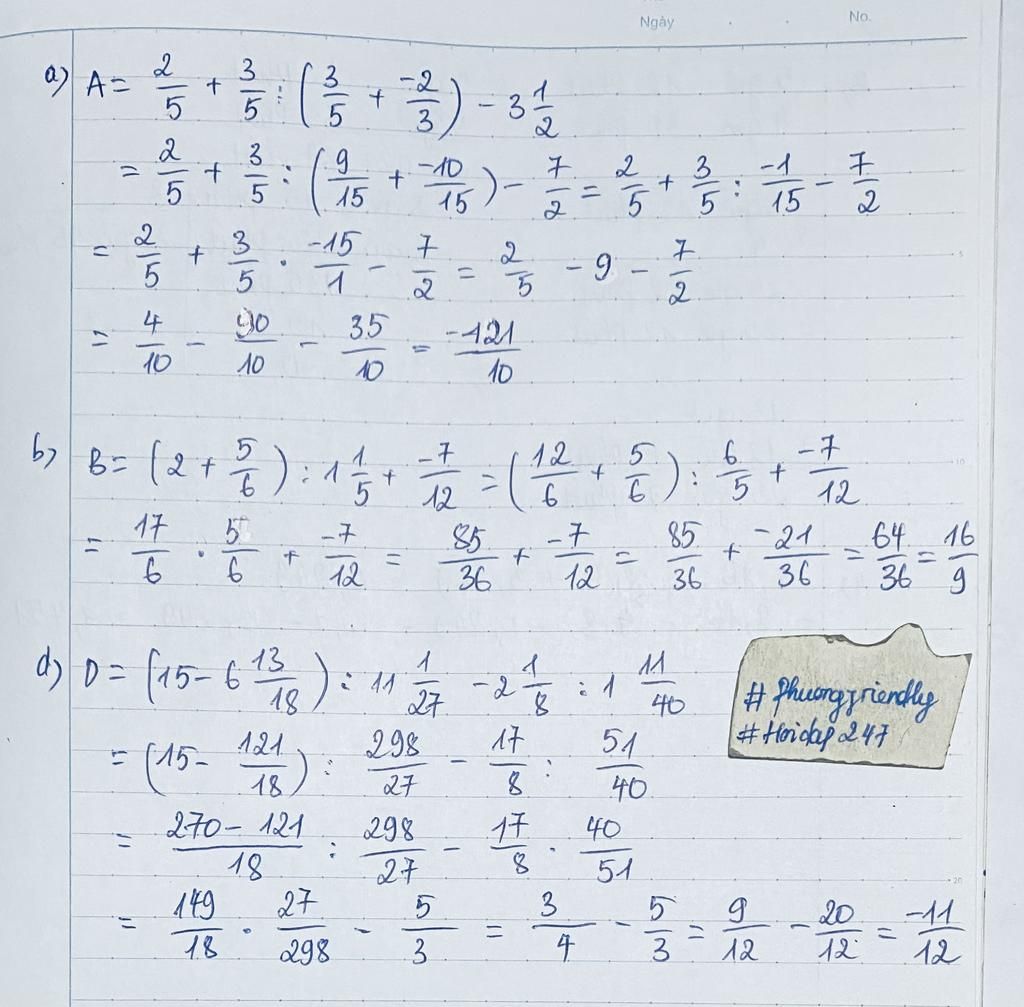 Ngày . . No.
a) A = 2/5 + 3/5 : (3/5 + -2/3) - 3 1/2
= 2/5 + 3/5 : (9/15 + -10/15) - 7/2 = 2/5 + 3/5 : -1/15 - 7/2
= 2/5 + 3/5 . -15/1 - 7/2 = 2/5 - 9 - 7/2
= 4/10 - 90/10 - 35/10 = -121/10
b) B = (2 + 5/6) : 1 1/5 + -7/12 = (12/6 + 5/6) : 6/5 + -7/12
= 17/6 . 5/6 + -7/12 = 85/36 + -7/12 = 85/36 + -21/36 = 64/36 = 16/9
d) D = (15 - 6 13/18) : 11 1/27 - 2 1/8 : 1 11/40
= (15 - 121/18) : 298/27 - 17/8 : 51/40
= 270 - 121/18 : 298/27 - 17/8 . 40/51
= 149/18 . 27/298 - 5/3 = 3/4 - 5/3 = 9/12 - 20/12 = -11/12
# Phuongfriendly
# Hoidap 247